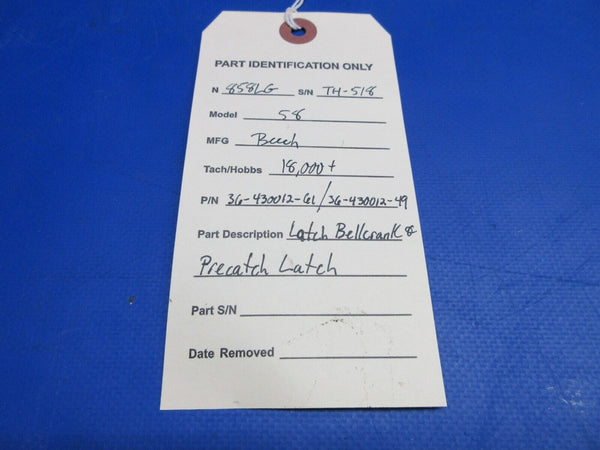 PART IDENTIFICATION ONLY
N 858LG S/N TH-518
Model 58
MFG Beech
Tach/Hobbs 18,000+
P/N 36-430012-61/36-430012-49
Part Description Latch Bellcrank &
Precatch Latch
Part S/N
Date Removed